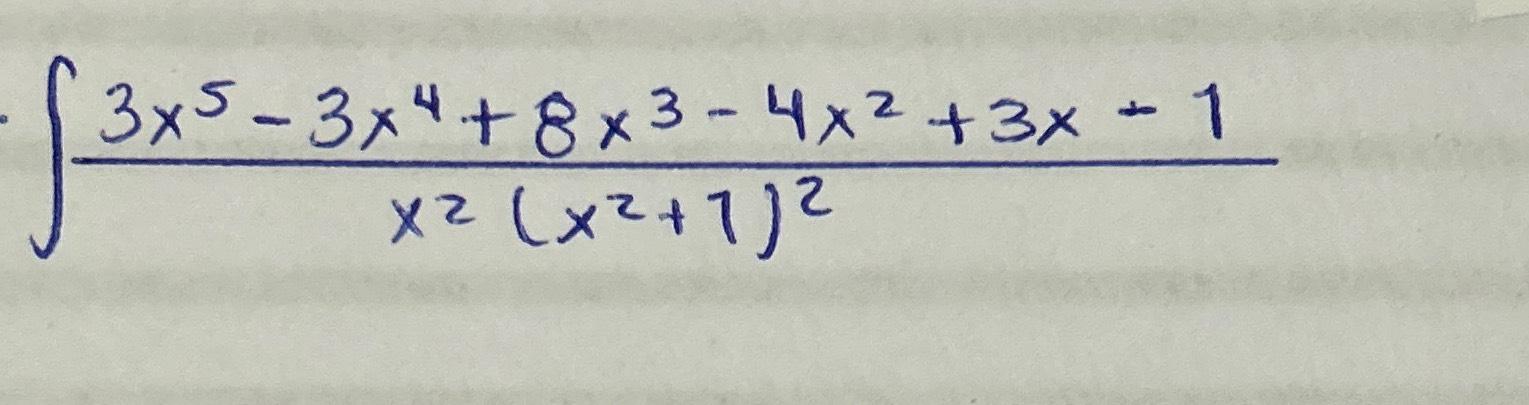 ∫ 3x⁵ - 3x⁴ + 8x³ - 4x² + 3x - 1
x² (x² + 1)²